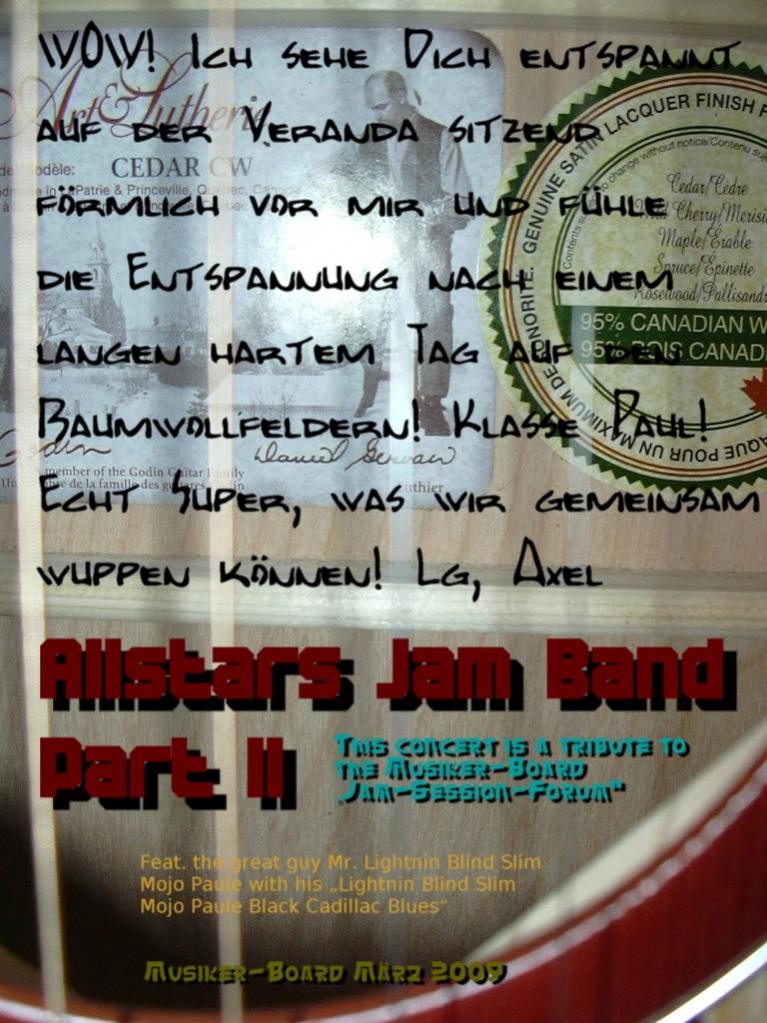 WOW! Ich sehe Dich entspannt
auf der Veranda sitzend
förmlich vor mir und fühle
die Entspannung nach einem
langen hartem Tag auf den
Baumwollfeldern! Klasse Paul!
Echt Super, was wir gemeinsam
wuppen können! Lg, Axel
Allstars Jam Band
Part II
This concert is a tribute to
the Musiker-Board
„Jam-Session-Forum“
Feat. the great guy Mr. Lightnin Blind Slim
Mojo Paule with his „Lightnin Blind Slim
Mojo Paule Black Cadillac Blues“
Musiker-Board März 2009
Art & Lutherie
CEDAR CW
Patrie & Princeville, Québec, Canada
member of the Godin Guitar Family
de la famille des guitares
Godin
GENUINE SATIN LACQUER FINISH
change without notice/Contenu
Cedar/Cèdre
Wild Cherry/Merisi
Maple/Érable
Spruce/Épinette
Rosewood/Pallisand
95% CANADIAN W
95% BOIS CANADI
AQUE POUR UN MAXIMUM DE